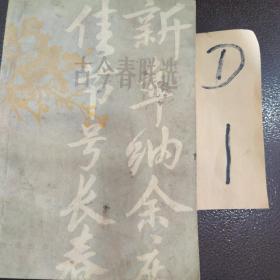 古今春联选
新年纳余庆
佳节号长春
D
1